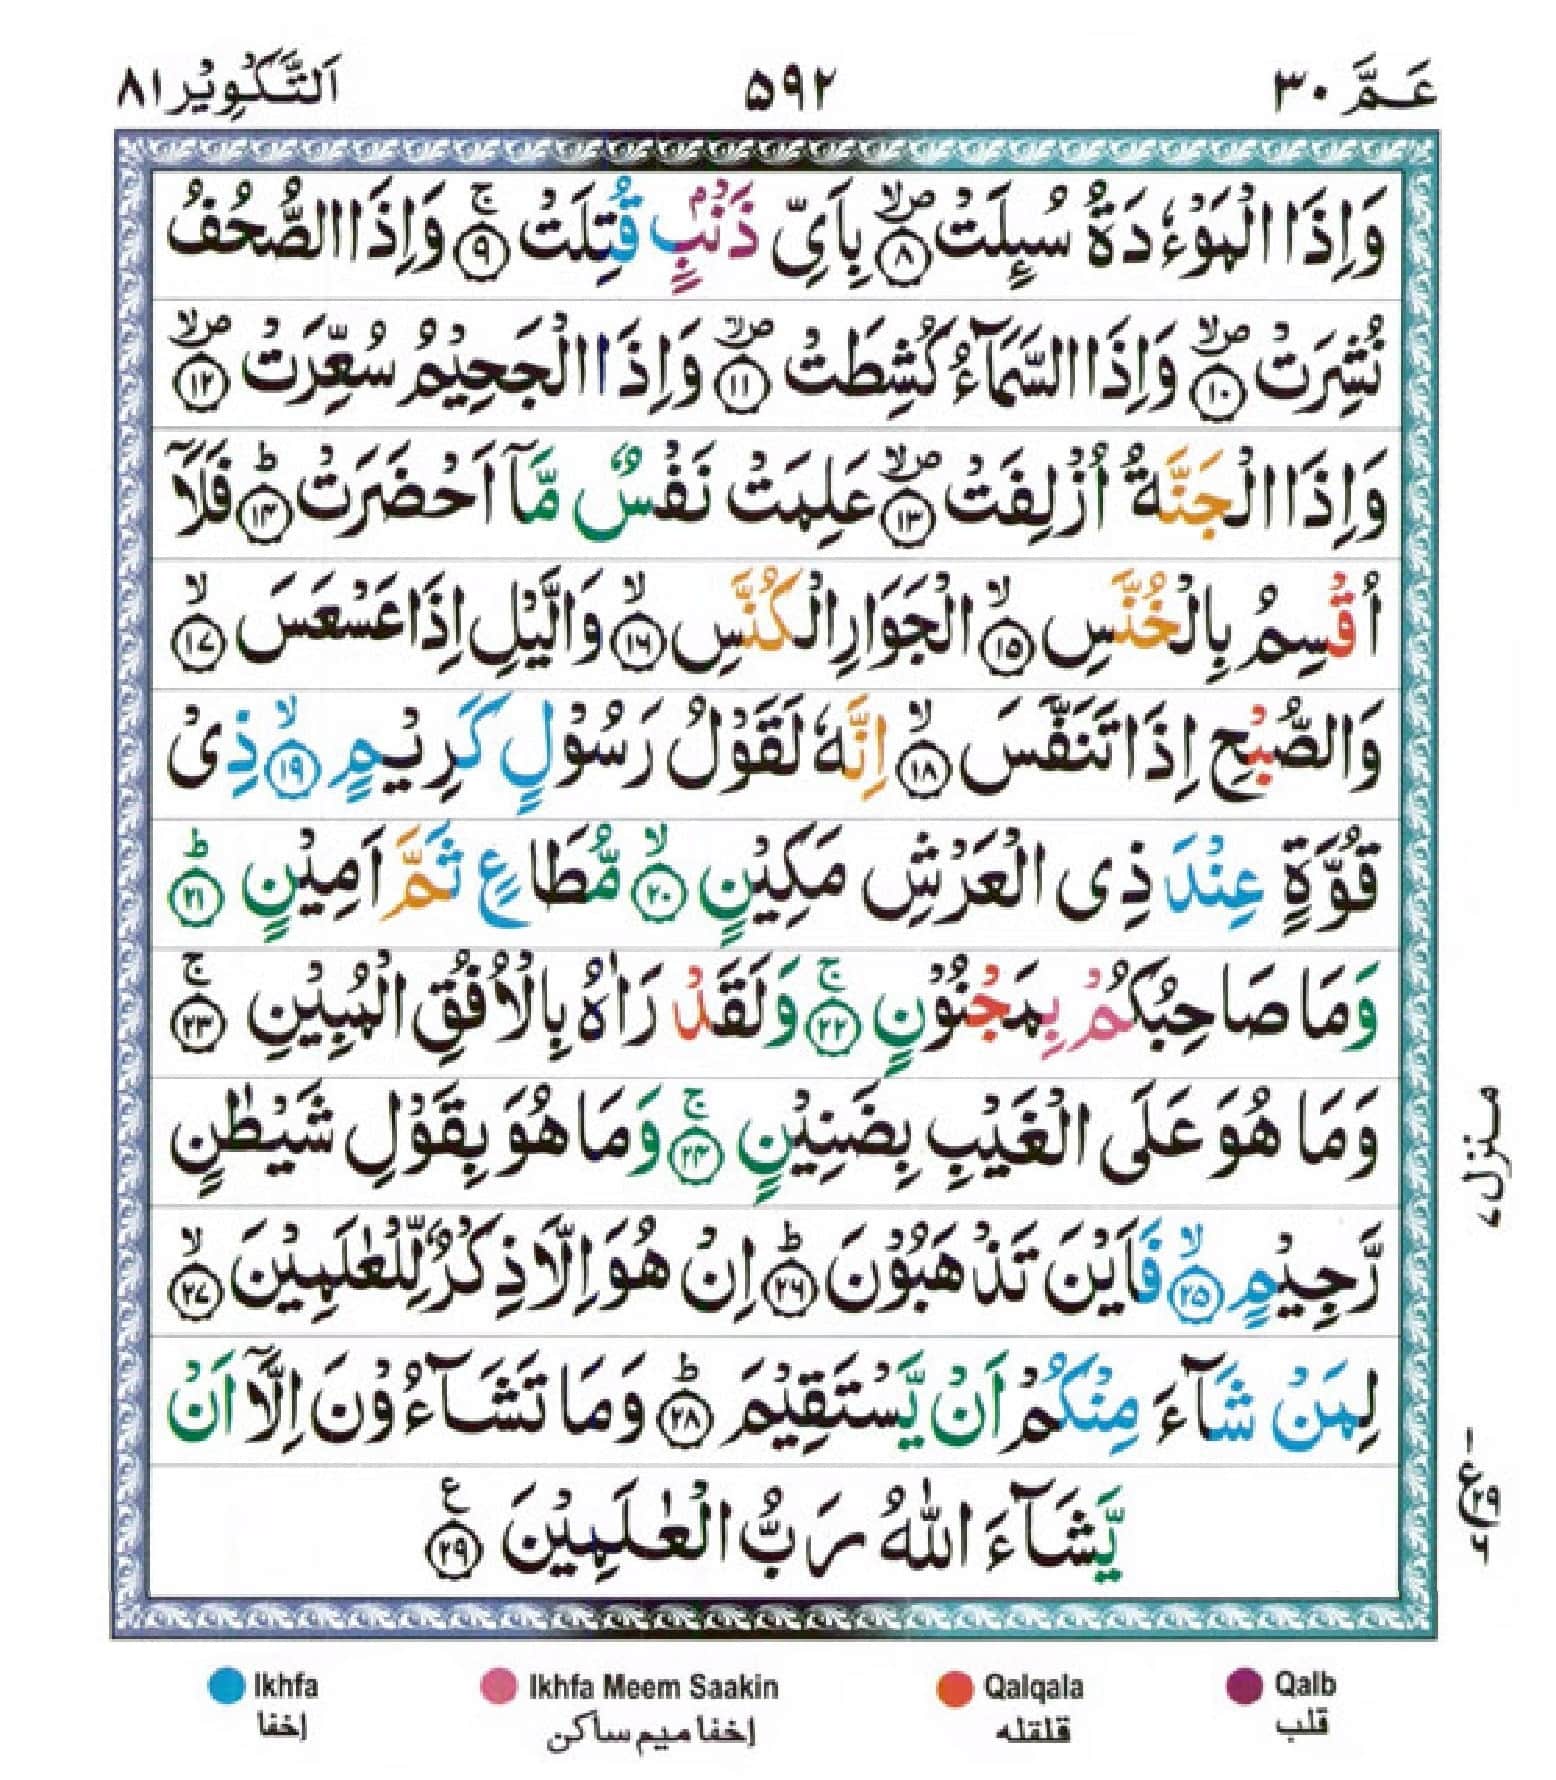 عَمَّ ٣٠ ٥٩٢ اَلتَّكْوِيْر ٨١
وَاِذَا الْمَوْءٗدَةُ سُىِٕلَتْ ۪ۙ ٨ بِاَیِّ ذَنْۢبٍ قُتِلَتْ ۚ ٩ وَاِذَا الصُّحُفُ
نُشِرَتْ ۪ۙ ١٠ وَاِذَا السَّمَآءُ كُشِطَتْ ۪ۙ ١١ وَاِذَا الْجَحِيْمُ سُعِّرَتْ ۪ۙ ١٢
وَاِذَا الْجَنَّةُ اُزْلِفَتْ ۪ۙ ١٣ عَلِمَتْ نَفْسٌ مَّاۤ اَحْضَرَتْ ؕ ١٤ فَلَاۤ
اُقْسِمُ بِالْخُنَّسِ ۙ ١٥ الْجَوَارِ الْكُنَّسِ ۙ ١٦ وَالَّيْلِ اِذَا عَسْعَسَ ۙ ١٧
وَالصُّبْحِ اِذَا تَنَفَّسَ ۙ ١٨ اِنَّهٗ لَقَوْلُ رَسُوْلٍ كَرِيْمٍ ۙ ١٩ ذِیْ
قُوَّةٍ عِنْدَ ذِی الْعَرْشِ مَكِيْنٍ ۙ ٢٠ مُّطَاعٍ ثَمَّ اَمِيْنٍ ؕ ٢١
وَمَا صَاحِبُكُمْ بِمَجْنُوْنٍ ۚ ٢٢ وَلَقَدْ رَاٰهُ بِالْاُفُقِ الْمُبِيْنِ ۚ ٢٣
وَمَا هُوَ عَلَی الْغَيْبِ بِضَنِيْنٍ ۚ ٢٤ وَمَا هُوَ بِقَوْلِ شَيْطٰنٍ
رَّجِيْمٍ ۙ ٢٥ فَاَيْنَ تَذْهَبُوْنَ ؕ ٢٦ اِنْ هُوَ اِلَّا ذِكْرٌ لِّلْعٰلَمِيْنَ ۙ ٢٧
لِمَنْ شَآءَ مِنْكُمْ اَنْ يَّسْتَقِيْمَ ؕ ٢٨ وَمَا تَشَآءُوْنَ اِلَّاۤ اَنْ
يَّشَآءَ اللّٰهُ رَبُّ الْعٰلَمِيْنَ ۧ ٢٩
منزل ٧
ع ٢٩ ٦
Ikhfa Ikhfa Meem Saakin Qalqala Qalb
إخفا إخفا ميم ساكن قلقله قلب